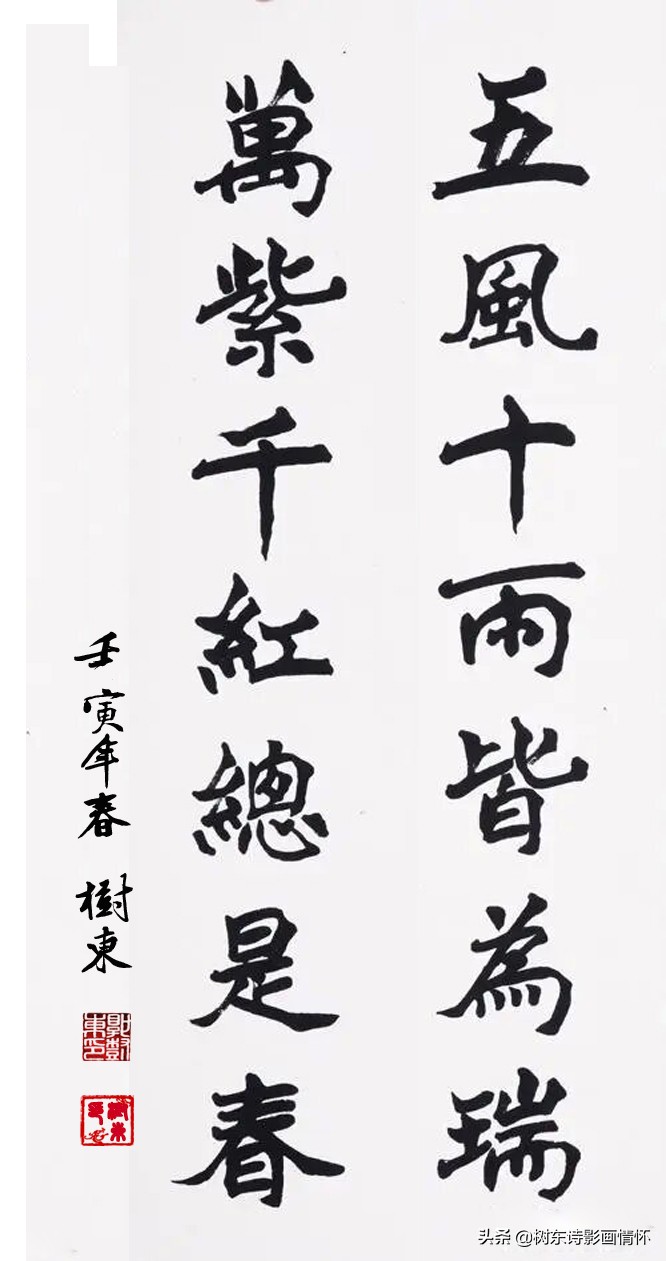 五風十雨皆為瑞
萬紫千紅總是春
壬寅年春 樹東
头条 @树东诗影画情怀